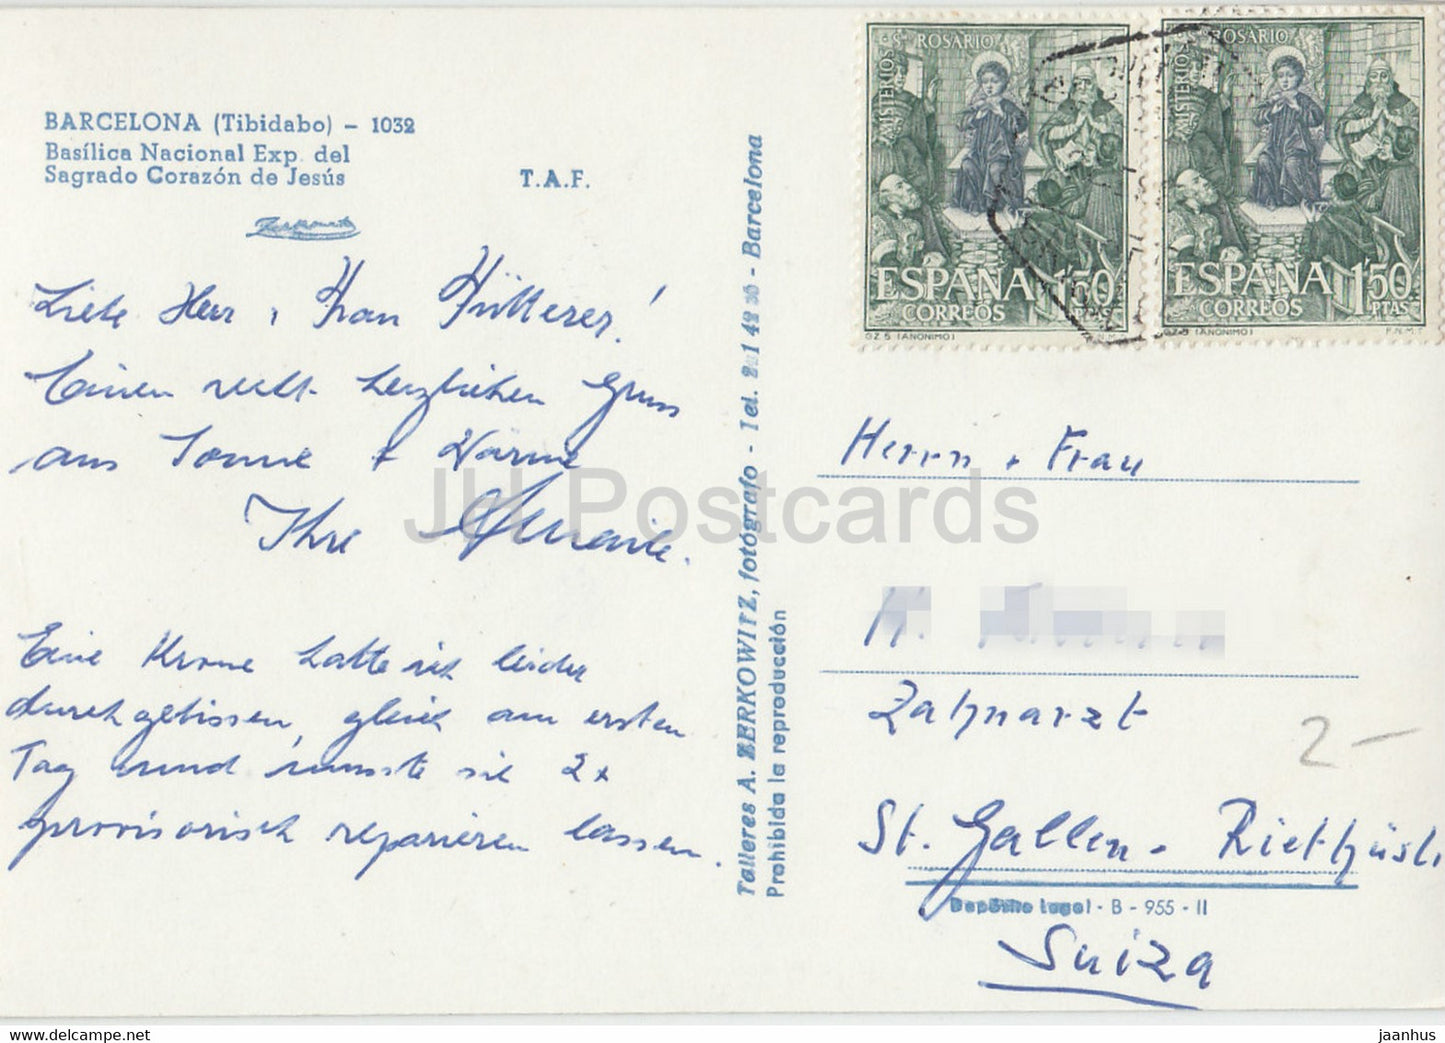 BARCELONA (Tibidabo) - 1032
Basílica Nacional Exp. del
Sagrado Corazón de Jesús
T.A.F.
Liebe Herr + Frau Hütterer!
Einen recht herzlichen Gruss
aus Sonne + Wärme
Ihre
Eine Krone hatte ich leider
durchgebissen, gleich am ersten
Tag und musste sie 2x
provisorisch reparieren lassen.
Talleres A. ZERKOWITZ, fotógrafo - Tel. 221 42 30 - Barcelona
Prohibida la reproducción
MISTERIOS S. ROSARIO
ESPAÑA 1'50
CORREOS
GZ.5 (ANONIMO) F.N.M.
MISTERIOS S. ROSARIO
ESPAÑA 1'50
CORREOS PTAS
GZ.5 (ANONIMO) F.N.M.T.
Herrn + Frau
H.
Zahnarzt
2-
St. Gallen - Riethüsli
Depósito Legal - B - 955 - II
Suiza
JH Postcards
https://www.delcampe.net
jaanhus